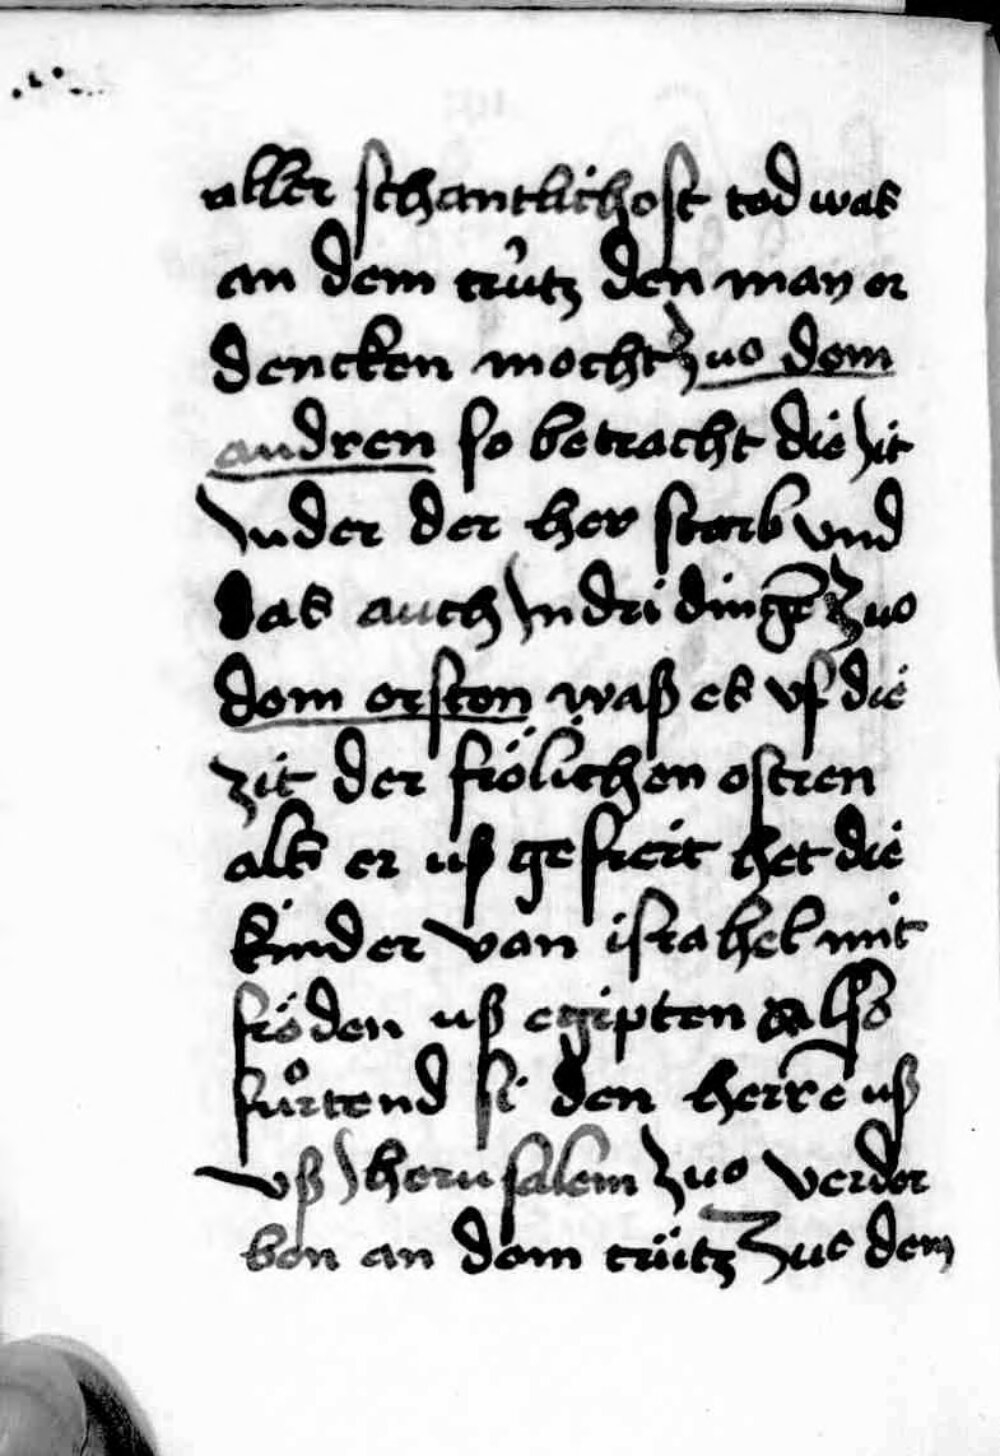 aller schantlichost tod was
an dem crütz den man er
dencken mocht Zuo dem
andren so betracht die zit
Inder der her starb vnd
das auch In dri dingē Zuo
dem ersten waß es vf die
zit der frölichen ostren
als er uß gefreit het die
kinder von israhel mit
fröden uß egipten also
fuͦrtend si den herrē uß
vß Jherusalem zuo verder
ben an dem crütz Zuo dem